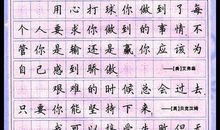 用心打球你做到了每
个人要求你做到的事情不
管你是输还是赢你应该为
自己感到骄傲
——(美)艾弗森
艰难的时候总会过去
只要你能坚持下来
——(英)贝克汉姆
我可以接受失败但